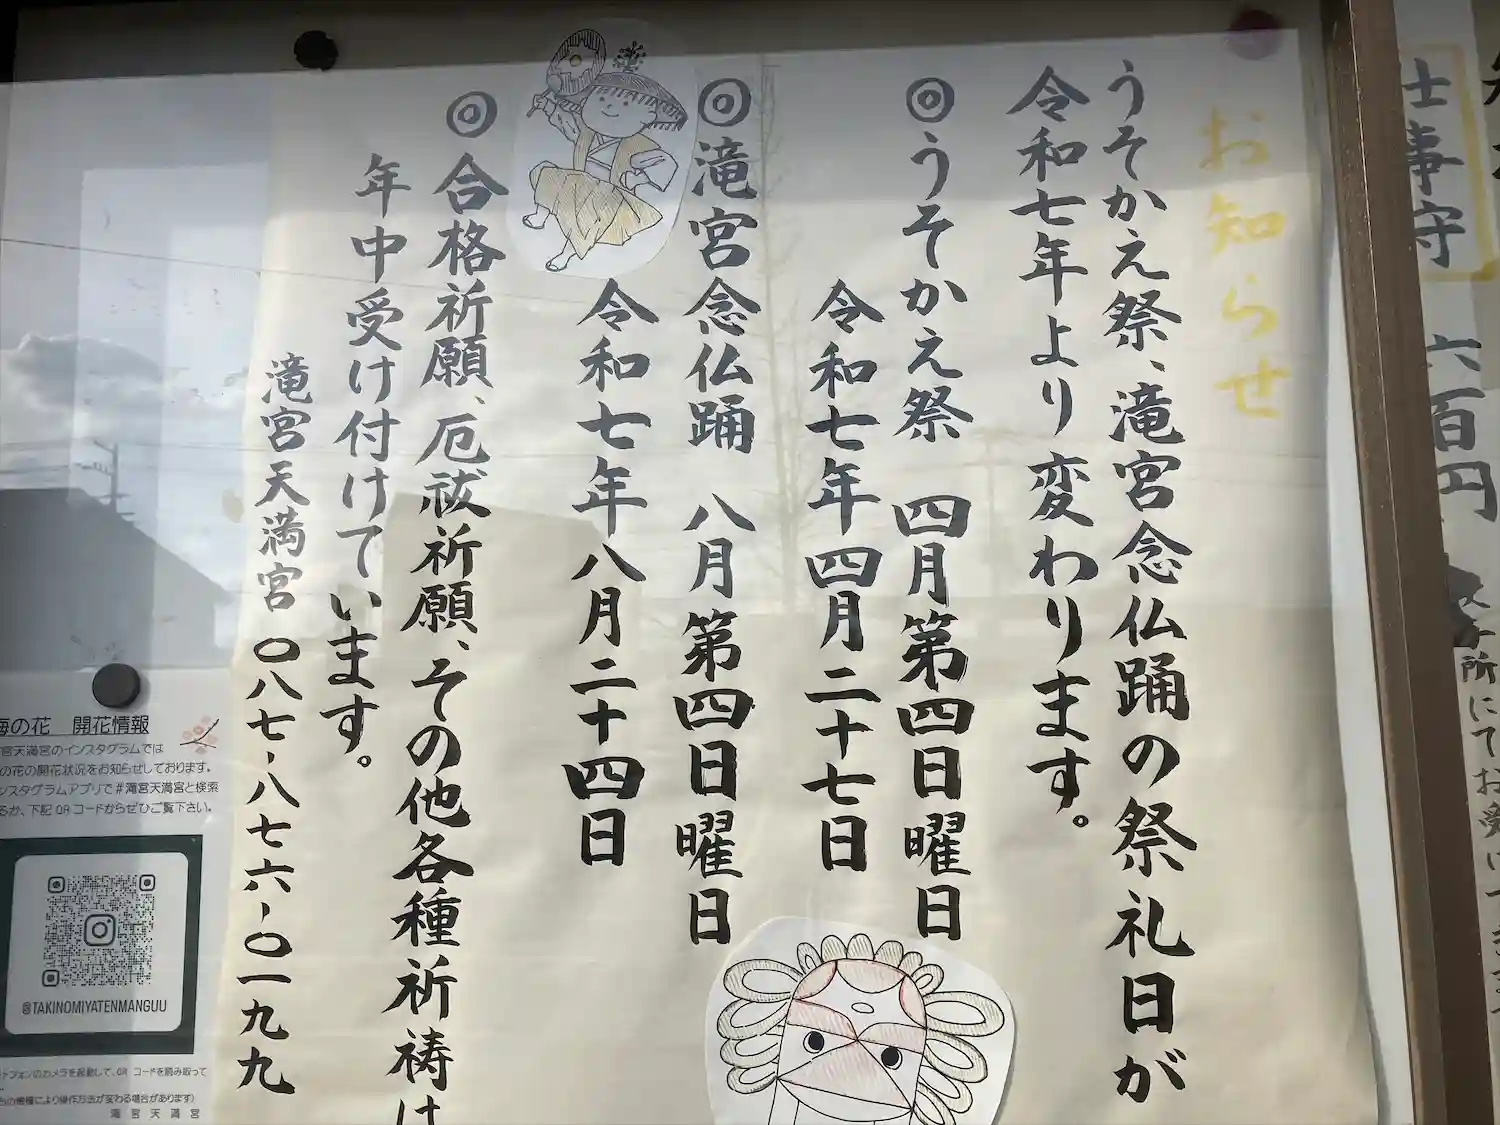 お知らせ
うそかえ祭、滝宮念仏踊の祭礼日が
令和七年より変わります。
◎うそかえ祭 四月第四日曜日
令和七年四月二十七日
◎滝宮念仏踊 八月第四日曜日
令和七年八月二十四日
◎合格祈願、厄祓祈願、その他各種祈祷は
年中受け付けています。
滝宮天満宮 〇八七-八七六-〇一九九
士事守
六百円
所にてお受け
の花 開花情報
宮天満宮のインスタグラムでは
の花の開花状況をお知らせしております。
ンスタグラムアプリで#滝宮天満宮と検索
るか、下記QRコードからぜひご覧下さい。
@TAKINOMIYATENMANGUU
トフォンのカメラを起動して、QRコードを読み取って
の機種により操作方法が変わる場合があります)
滝宮天満宮